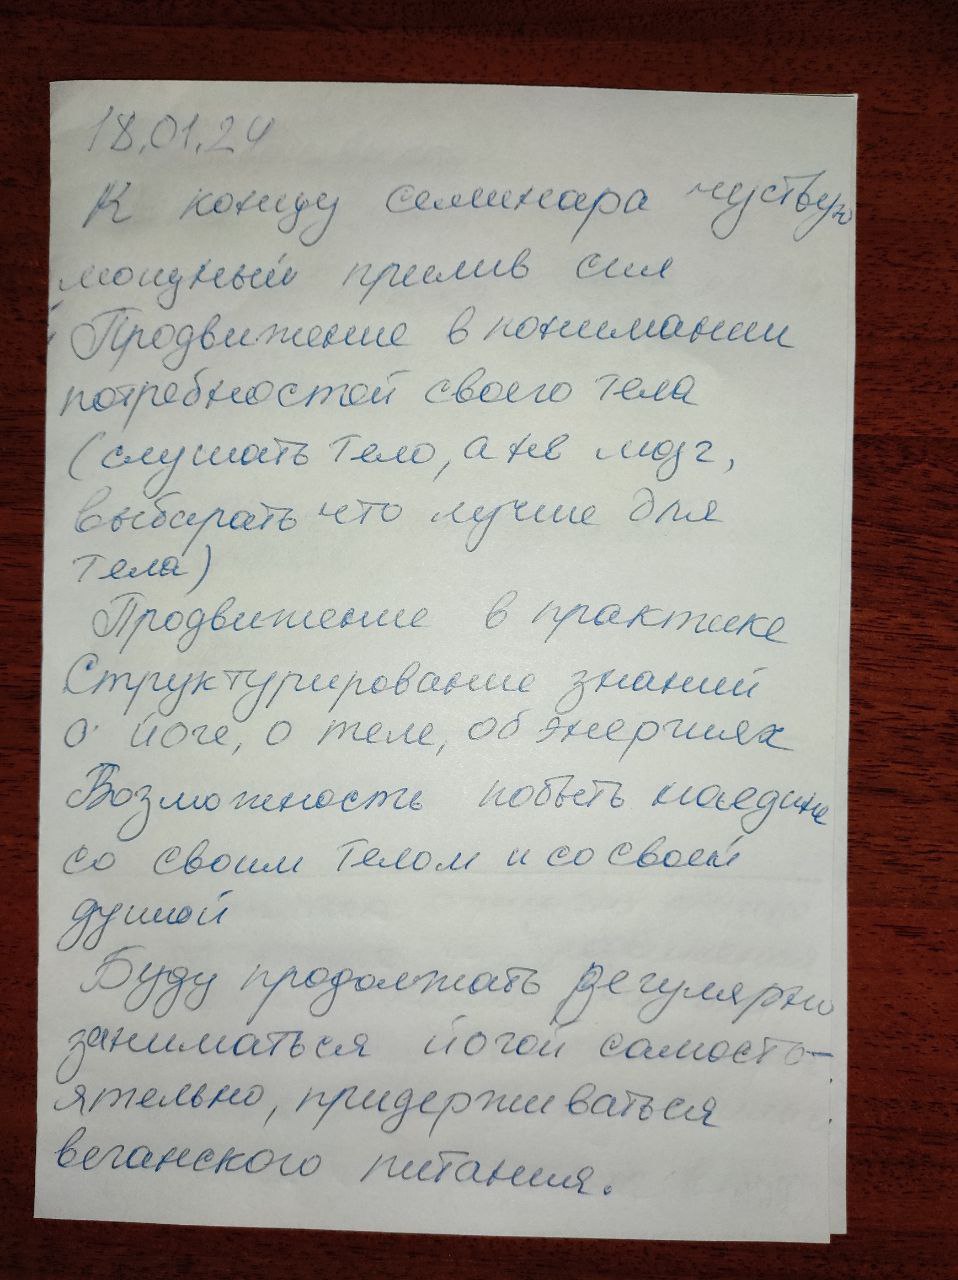 18.01.24
К концу семинара чуствую
мощный прилив сил
Продвижение в понимании
потребностей своего тела
(слушать тело, а не мозг,
выбирать что лучше для
тела)
Продвижение в практике
Структурирование знаний
о йоге, о теле, об энергиях
Возможность побыть наедине
со своим телом и со своей
душой
Буду продолжать регулярно
заниматься йогой самосто-
ятельно, придерживаться
веганского питания.